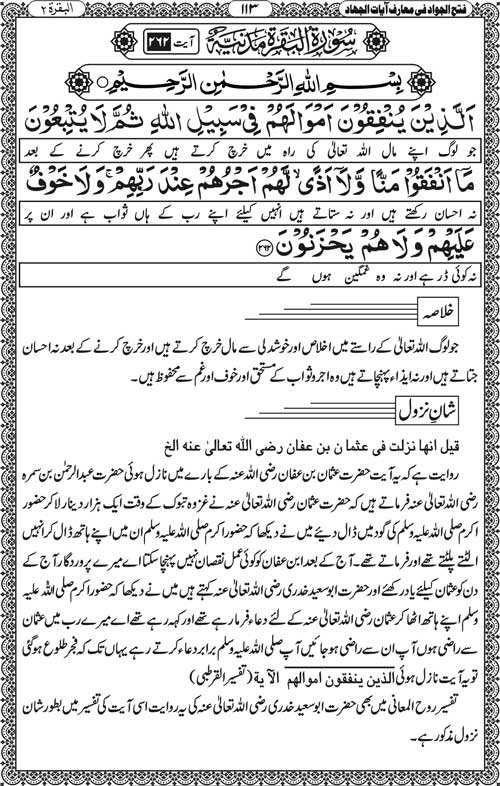 البقرة ۲
۱۱۳
فتح الجواد فی معارف آیات الجهاد
سُوْرَةُ الْبَقَرَةِ مَدَنِيَّةٌ
آیت ۲۶۲
بِسْمِ اللهِ الرَّحْمٰنِ الرَّحِيْمِ
اَلَّذِيْنَ يُنْفِقُوْنَ اَمْوَالَهُمْ فِيْ سَبِيْلِ اللهِ ثُمَّ لَا يُتْبِعُوْنَ
جو لوگ اپنے مال اللہ تعالیٰ کی راہ میں خرچ کرتے ہیں پھر خرچ کرنے کے بعد
مَآ اَنْفَقُوْا مَنًّا وَّلَآ اَذًى لَّهُمْ اَجْرُهُمْ عِنْدَ رَبِّهِمْ ۚ وَلَا خَوْفٌ
نہ احسان رکھتے ہیں اور نہ ستاتے ہیں انہیں کیلئے اپنے رب کے ہاں ثواب ہے اور ان پر
عَلَيْهِمْ وَلَا هُمْ يَحْزَنُوْنَ ۲۶۲
نہ کوئی ڈر ہے اور نہ وہ غمگین ہوں گے
خلاصہ
جو لوگ اللہ تعالیٰ کے راستے میں اخلاص اور خوشدلی سے مال خرچ کرتے ہیں اور خرچ کرنے کے بعد نہ احسان
جتاتے ہیں اور نہ ایذاء پہنچاتے ہیں وہ اجر و ثواب کے مستحق اور خوف اور غم سے محفوظ ہیں۔
شان نزول
قیل انها نزلت فی عثمان بن عفان رضی اللّٰہ تعالیٰ عنه الخ
روایت ہے کہ یہ آیت حضرت عثمان بن عفان رضی اللہ عنہ کے بارے میں نازل ہوئی حضرت عبدالرحمٰن بن سمرہ
رضی اللہ تعالیٰ عنہ فرماتے ہیں کہ حضرت عثمان رضی اللہ تعالیٰ عنہ نے غزوہ تبوک کے وقت ایک ہزار دینار لا کر حضور
اکرم صلی اللہ علیہ وسلم کی گود میں ڈال دیئے میں نے دیکھا کہ حضور اکرم صلی اللہ علیہ وسلم ان میں اپنے ہاتھ ڈال کر انہیں
الٹتے پلٹتے تھے اور فرماتے تھے۔ آج کے بعد ابن عفان کو کوئی عمل نقصان نہیں پہنچا سکتا اے میرے پروردگار آج کے
دن کو عثمان کیلئے یاد رکھئے اور حضرت ابوسعید خدری رضی اللہ تعالیٰ عنہ کہتے ہیں میں نے دیکھا کہ حضور اکرم صلی اللہ علیہ
وسلم اپنے ہاتھ اٹھا کر عثمان رضی اللہ تعالیٰ عنہ کے لئے دعاء فرما رہے تھے اور کہہ رہے تھے اے میرے رب میں عثمان
سے راضی ہوں آپ ان سے راضی ہو جائیں آپ صلی اللہ علیہ وسلم برابر دعاء کرتے رہے یہاں تک کہ فجر طلوع ہو گئی
تو یہ آیت نازل ہوئی الذین ینفقون اموالهم الآیة (تفسیر القرطبی)
تفسیر روح المعانی میں بھی حضرت ابوسعید خدری رضی اللہ تعالیٰ عنہ کی یہ روایت اسی آیت کی تفسیر میں بطور شان
نزول مذکور ہے۔